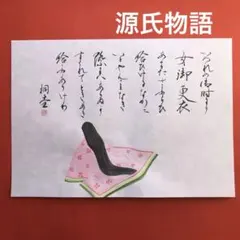 源氏物語
いづれの御時にか
女御更衣
あまたさぶらひ
給ひけるなかに
いとやんごとなき
際にはあらぬが
すぐれてときめき
給ふありけり
桐壺